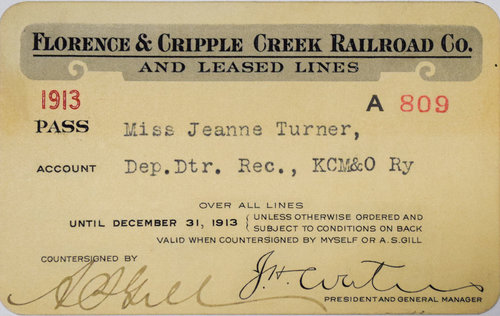 FLORENCE & CRIPPLE CREEK RAILROAD CO.
AND LEASED LINES
1913 A 809
PASS Miss Jeanne Turner,
ACCOUNT Dep.Dtr. Rec., KCM&O Ry
OVER ALL LINES
UNTIL DECEMBER 31, 1913 { UNLESS OTHERWISE ORDERED AND
SUBJECT TO CONDITIONS ON BACK
VALID WHEN COUNTERSIGNED BY MYSELF OR A.S.GILL
COUNTERSIGNED BY
A S Gill J.H. Waters
PRESIDENT AND GENERAL MANAGER